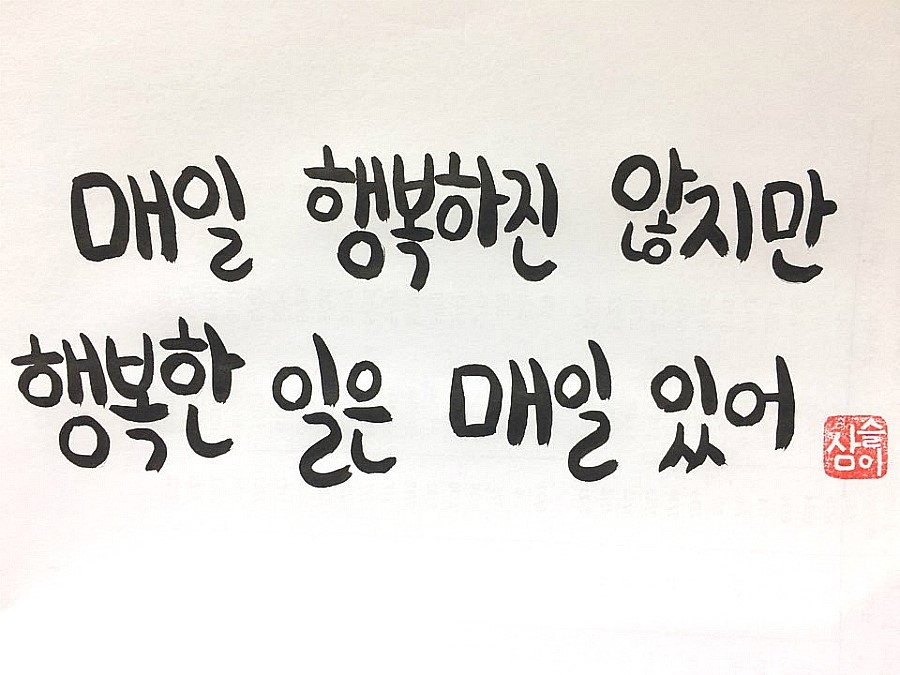 매일 행복하진 않지만
행복한 일은 매일 있어
슬이
삼